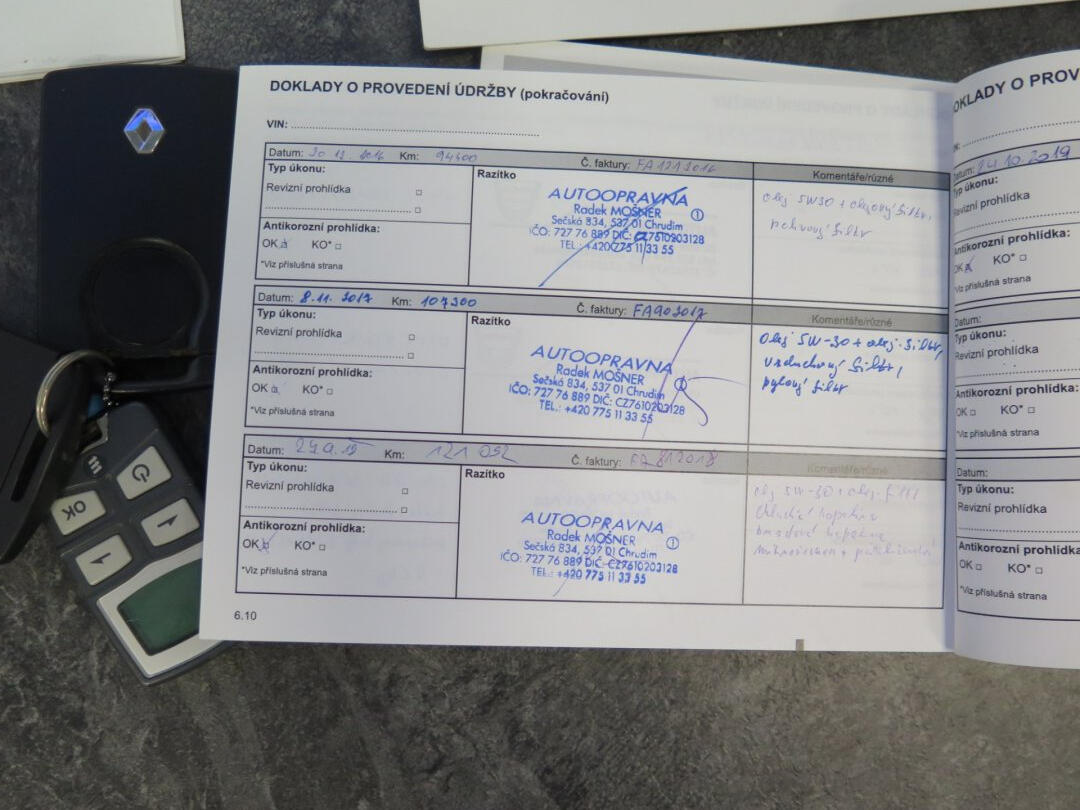 DOKLADY O PROVEDENÍ ÚDRŽBY (pokračování)
VIN:
Datum: 30 12. 2016 Km: 94400 Č. faktury: FA1212016
Typ úkonu:
Revizní prohlídka
Antikorozní prohlídka:
OK KO*
*Viz příslušná strana
Razítko
AUTOOPRAVNA
Radek MOŠNER 1
Sečská 834, 537 01 Chrudim
IČO: 727 76 889 DIČ: CZ7610203128
TEL.: +420 775 11 33 55
Komentáře/různé
Olej 5W30 + olejový filtr,
filtr
Datum: 8.11. 2017 Km: 107300 Č. faktury: FA902017
Typ úkonu:
Revizní prohlídka
Antikorozní prohlídka:
OK KO*
*Viz příslušná strana
Razítko
AUTOOPRAVNA
Radek MOŠNER 1
Sečská 834, 537 01 Chrudim
IČO: 727 76 889 DIČ: CZ7610203128
TEL.: +420 775 11 33 55
Komentáře/různé
Olej 5W-30 + olej. filtr,
vzduchový filtr,
pylový filtr
Datum: Km: 121 052 Č. faktury: FA 812018
Typ úkonu:
Revizní prohlídka
Antikorozní prohlídka:
OK KO*
*Viz příslušná strana
Razítko
AUTOOPRAVNA
Radek MOŠNER 1
Sečská 834, 537 01 Chrudim
IČO: 727 76 889 DIČ: CZ7610203128
TEL.: +420 775 11 33 55
Komentáře/různé
olej 5W-30 + olej. filtr
chladící kapalina
brzdová kapalina
6.10
OKLADY O PROV
Datum: 24.10.2019
Typ úkonu:
Revizní prohlídka
Antikorozní prohlídka:
OK KO*
*Viz příslušná strana
Datum:
Typ úkonu:
Revizní prohlídka
Antikorozní prohlídka
OK KO*
*Viz příslušná strana
Datum:
Typ úkonu:
Revizní prohlídka
Antikorozní prohlídka
OK KO*
*Viz příslušná strana
OK